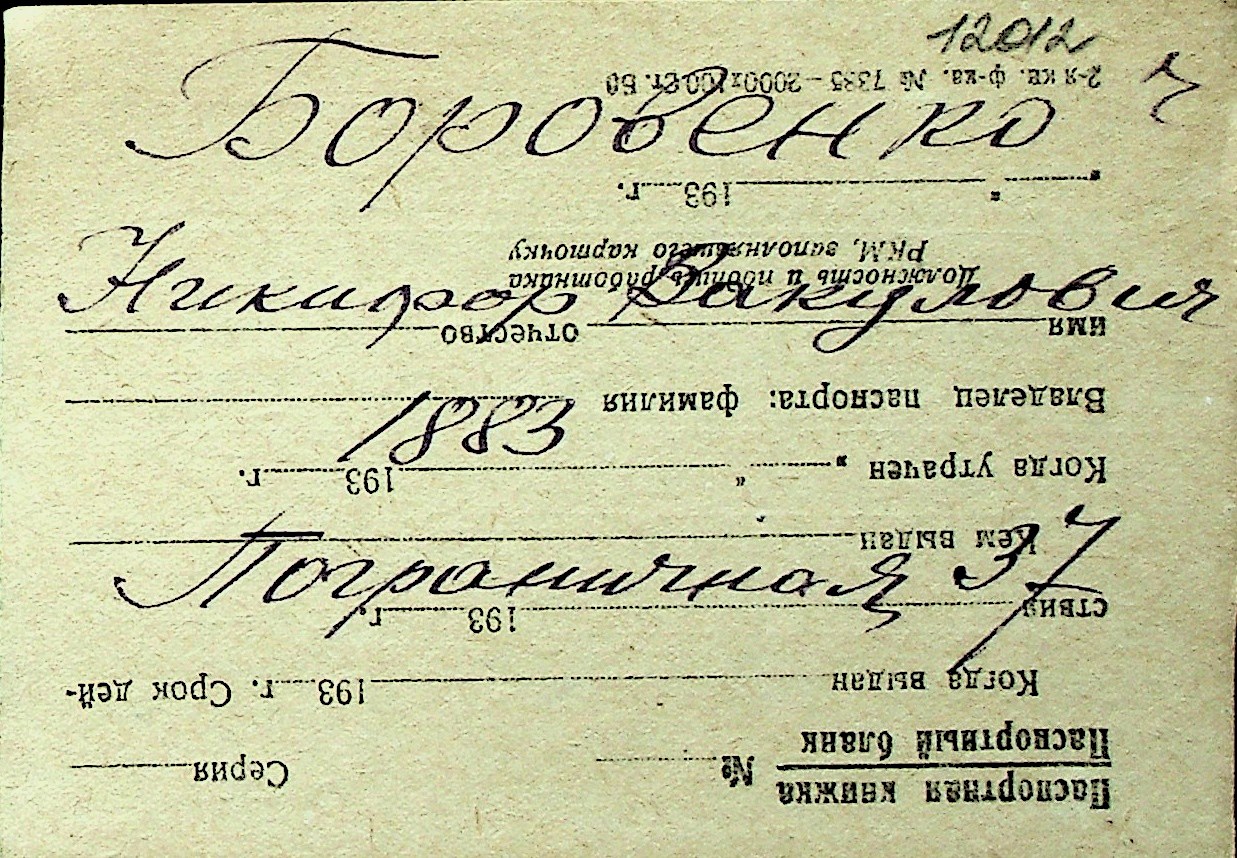 12012
Боровенко
Никифор Вакулович
1883
Пограничная 37
Паспортная книжка
Паспортный бланк № Серия
Когда выдан 193 г. Срок дей-
ствия 193 г.
Кем выдан
Когда утрачен „ " 193 г.
Владелец паспорта: фамилия
имя отчество
Должность и подпись работника
РКМ, заполнявшего карточку
" " 193 г.
2-я кв. ф-ка. № 7335 — 2000х100 Ст. Б6